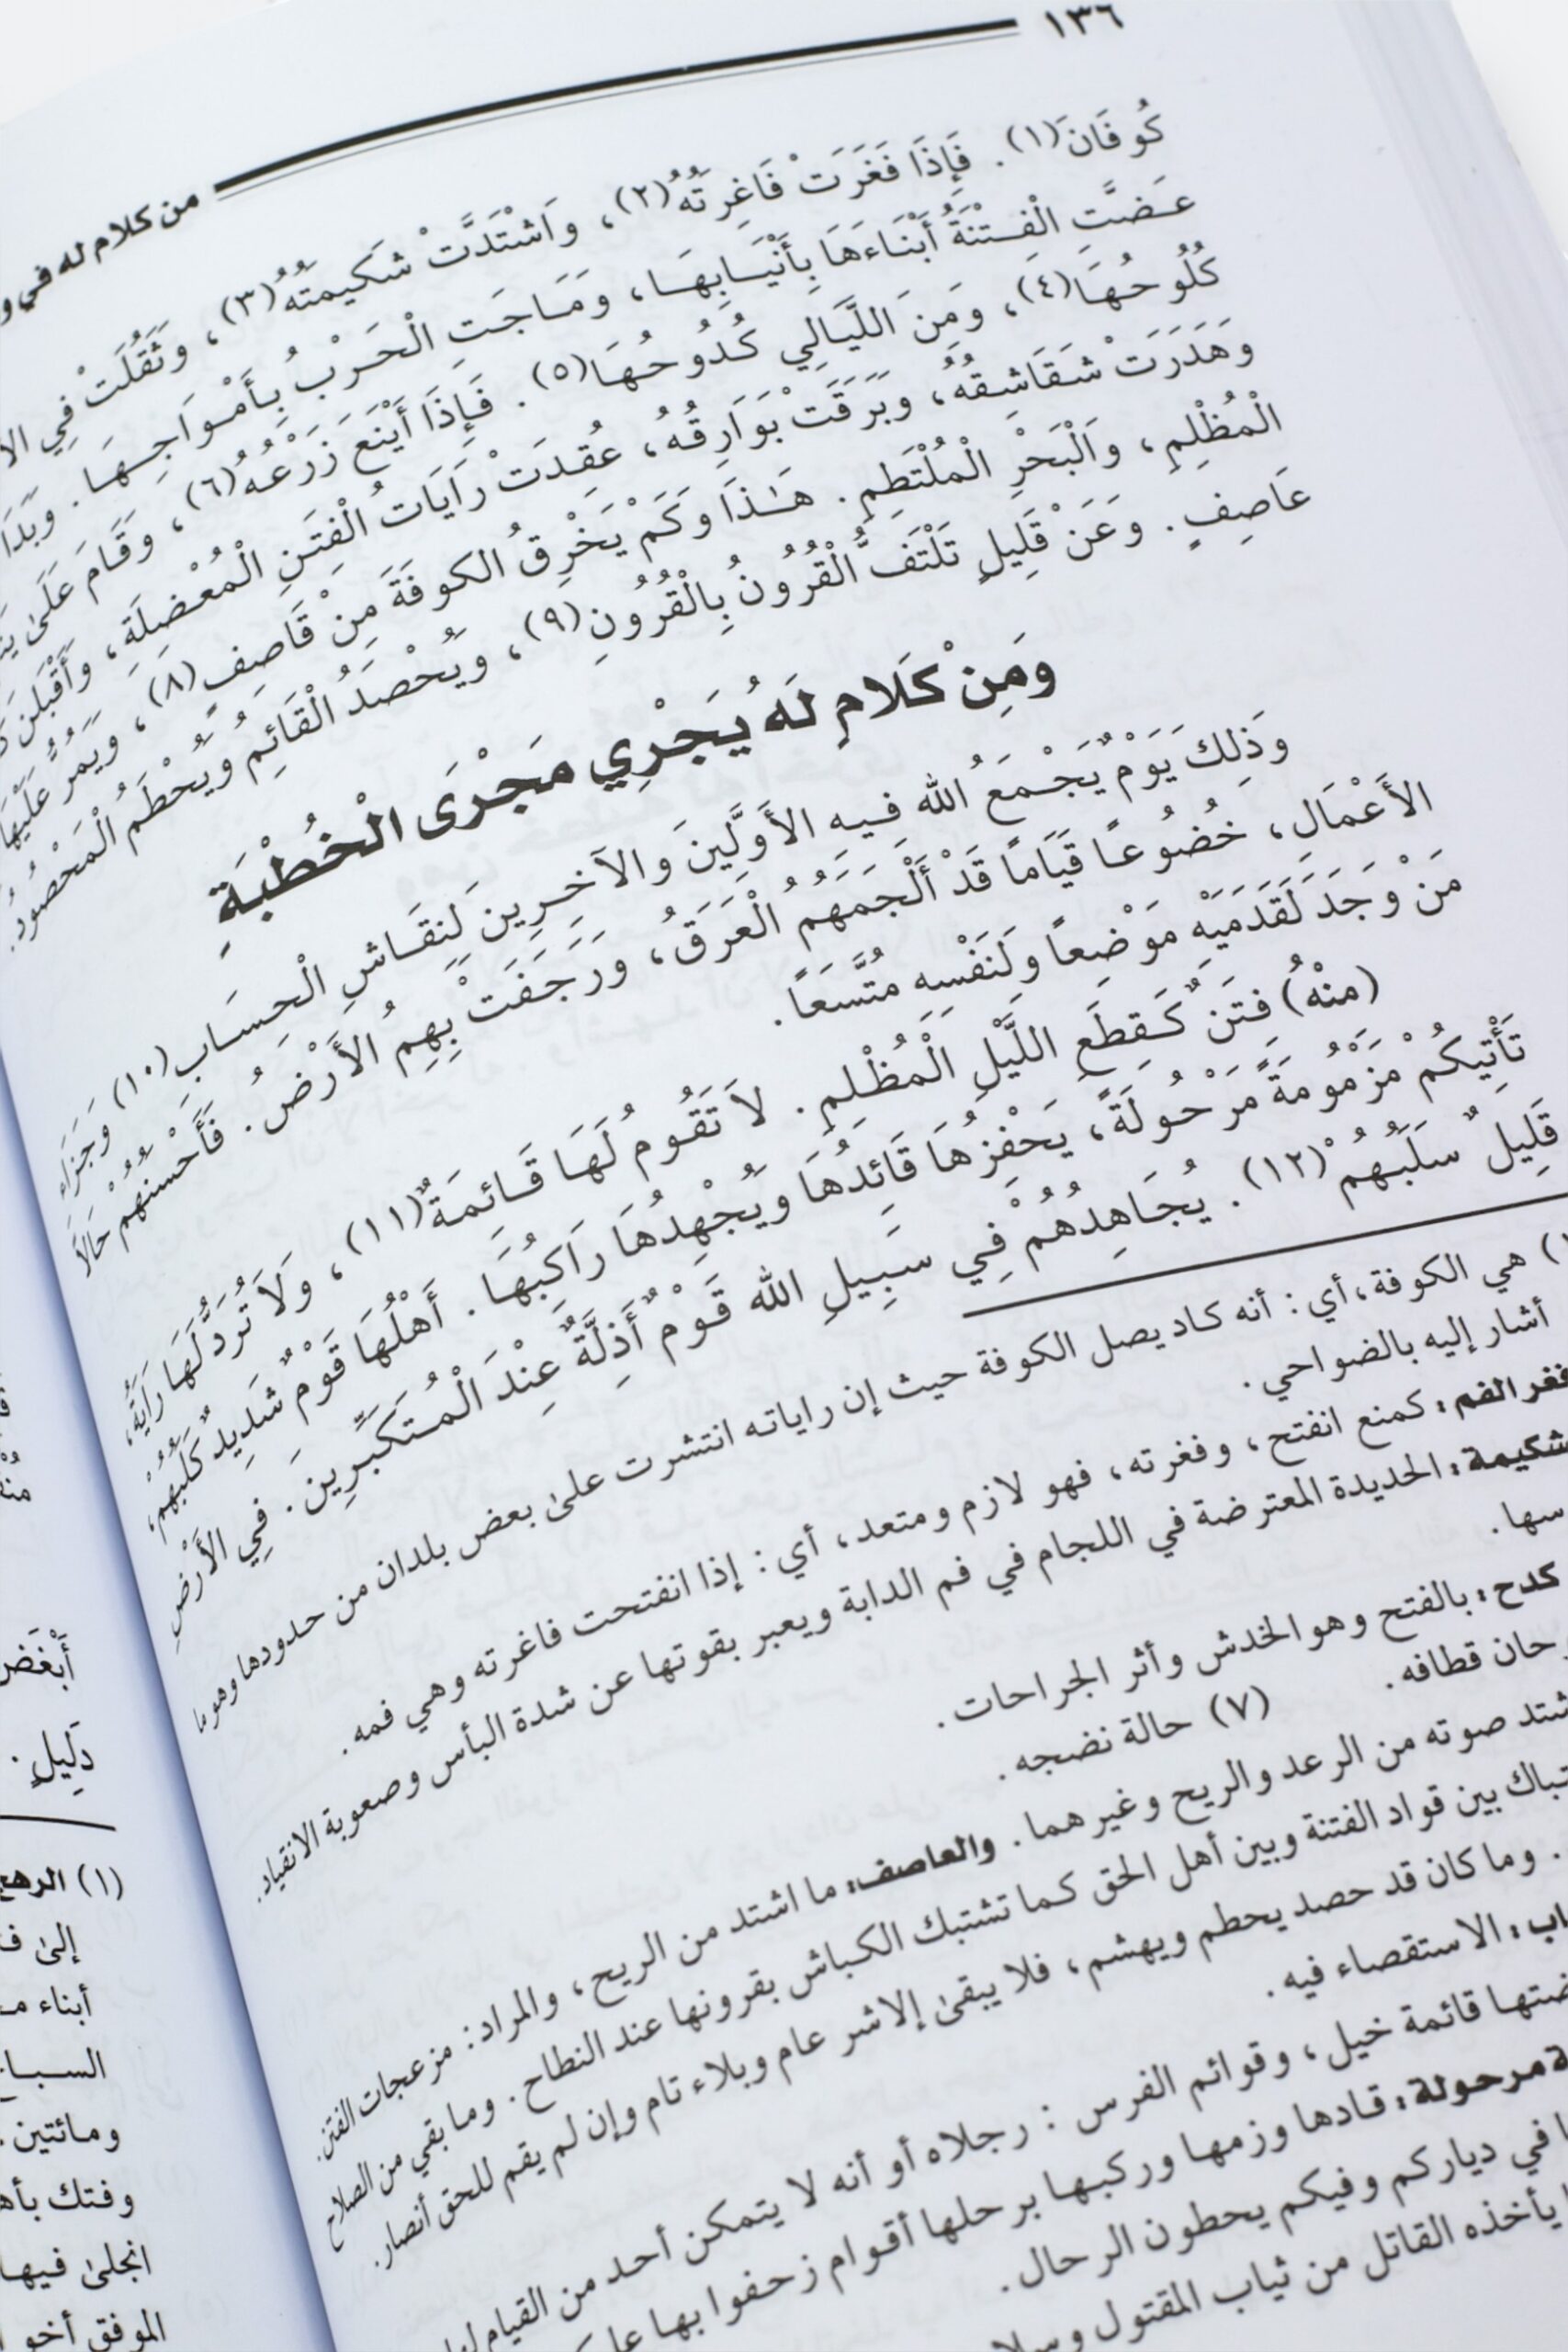 ١٣٦
من كلام له في و
كُوفَانَ(١). فَإِذَا فَغَرَتْ فَاغِرَتُهُ(٢)، وَاشْتَدَّتْ شَكِيمَتُهُ(٣)، وَثَقُلَتْ فِي
عَضَّتِ الْفِتْنَةُ أَبْنَاءَهَا بِأَنْيَابِهَا، وَمَاجَتِ الْحَرْبُ بِأَمْوَاجِهَا. وَبَدَا
كُلُوحُهَا(٤)، وَمِنَ اللَّيَالِي كُدُوحُهَا(٥). فَإِذَا أَيْنَعَ زَرْعُهُ(٦)، وَقَامَ عَلَىٰ
وَهَدَرَتْ شَقَاشِقُهُ، وَبَرَقَتْ بَوَارِقُهُ، عُقِدَتْ رَايَاتُ الْفِتَنِ الْمُعْضِلَةِ، وَأَقْبَلْنَ
الْمُظْلِمِ، وَالْبَحْرِ الْمُلْتَطِمِ. هَـٰذَا وَكَمْ يَخْرِقُ الكوفَةَ مِنْ قَاصِفٍ(٨)، وَيَمُرُّ عَلَيْهَا
عَاصِفٍ. وَعَنْ قَلِيلٍ تَلْتَفُّ الْقُرُونُ بِالْقُرُونِ(٩)، وَيُحْصَدُ الْقَائِمِ وَيُحْطَمُ الْمَحْصُودُ.
وَمِنْ كَلَامٍ لَهُ يَجْرِي مَجْرَى الْخُطْبَةِ
وَذَلِكَ يَوْمٌ يَجْمَعُ الله فِيهِ الأَوَّلِينَ وَالآخِرِينَ لِنِقَاشِ الْحِسَابِ(١٠) وَجَزَاءِ
الأَعْمَالِ، خُضُوعًا قِيَامًا قَدْ أَلْجَمَهُم الْعَرَقُ، وَرَجَفَتْ بِهِمُ الأَرْضُ. فَأَحْسَنُهُمْ حَالًا
مَنْ وَجَدَ لِقَدَمَيْهِ مَوْضِعاً وَلِنَفْسِهِ مُتَّسَعاً.
(منْهُ) فِتَنٌ كَقِطَعِ اللَّيْلِ الْمُظْلِمِ. لاَ تَقُومُ لَهَا قَائِمَةٌ(١١)، وَلاَ تُرَدُّ لَهَا رَايَةٌ،
تَأْتِيكُمْ مَزْمُومَةً مَرْحُولَةً، يَحْفِزُهَا قَائِدُهَا وَيُجْهِدُهَا رَاكِبُهَا. أَهْلُهَا قَوْمٌ شَدِيدٌ كَلَبُهُمْ،
قَلِيلٌ سَلَبُهُمْ(١٢). يُجَاهِدُهُمْ فِي سَبِيلِ الله قَوْمٌ أَذِلَّةٌ عِنْدَ الْمُتَكَبِّرِينَ. فِي الأَرْضِ
هي الكوفة، أي: أنه كاد يصل الكوفة حيث إن راياته انتشرت علىٰ بعض بلدان من حدودها وهو ما
أشار إليه بالضواحي.
فغر الفم: كمنع انفتح، وفغرته، فهو لازم ومتعد، أي: إذا انفتحت فاغرته وهي فمه.
شكيمة: الحديدة المعترضة في اللجام في فم الدابة ويعبر بقوتها عن شدة البأس وصعوبة الانقياد.
كدح: بالفتح وهو الخدش وأثر الجراحات.
حان قطافه.
(٧) حالة نضجه.
شتد صوته من الرعد والريح وغيرهما. والعاصف: ما اشتد من الريح، والمراد: مزعجات الفتن.
تباك بين قواد الفتنة وبين أهل الحق كما تشتبك الكباش بقرونها عند النطاح. وما بقي من الصلاح
. وما كان قد حصد يحطم ويهشم، فلا يبقىٰ إلا شر عام وبلاء تام وإن لم يقم للحق أنصار.
اب: الاستقصاء فيه.
ضتها قائمة خيل، وقوائم الفرس: رجلاه أو أنه لا يتمكن أحد من القيام
ة مرحولة: قادها وزمها وركبها برحلها أقوام زحفوا بها
ا في دياركم وفيكم يحطون الرحال.
يأخذه القاتل من ثياب المقتول
أَبْغَض
دَلِيلٍ.
(١) الرهج
إلىٰ
أبناء
السبا
ومائتين.
وفتك بأه
انجلىٰ فيها
الموفق أخو